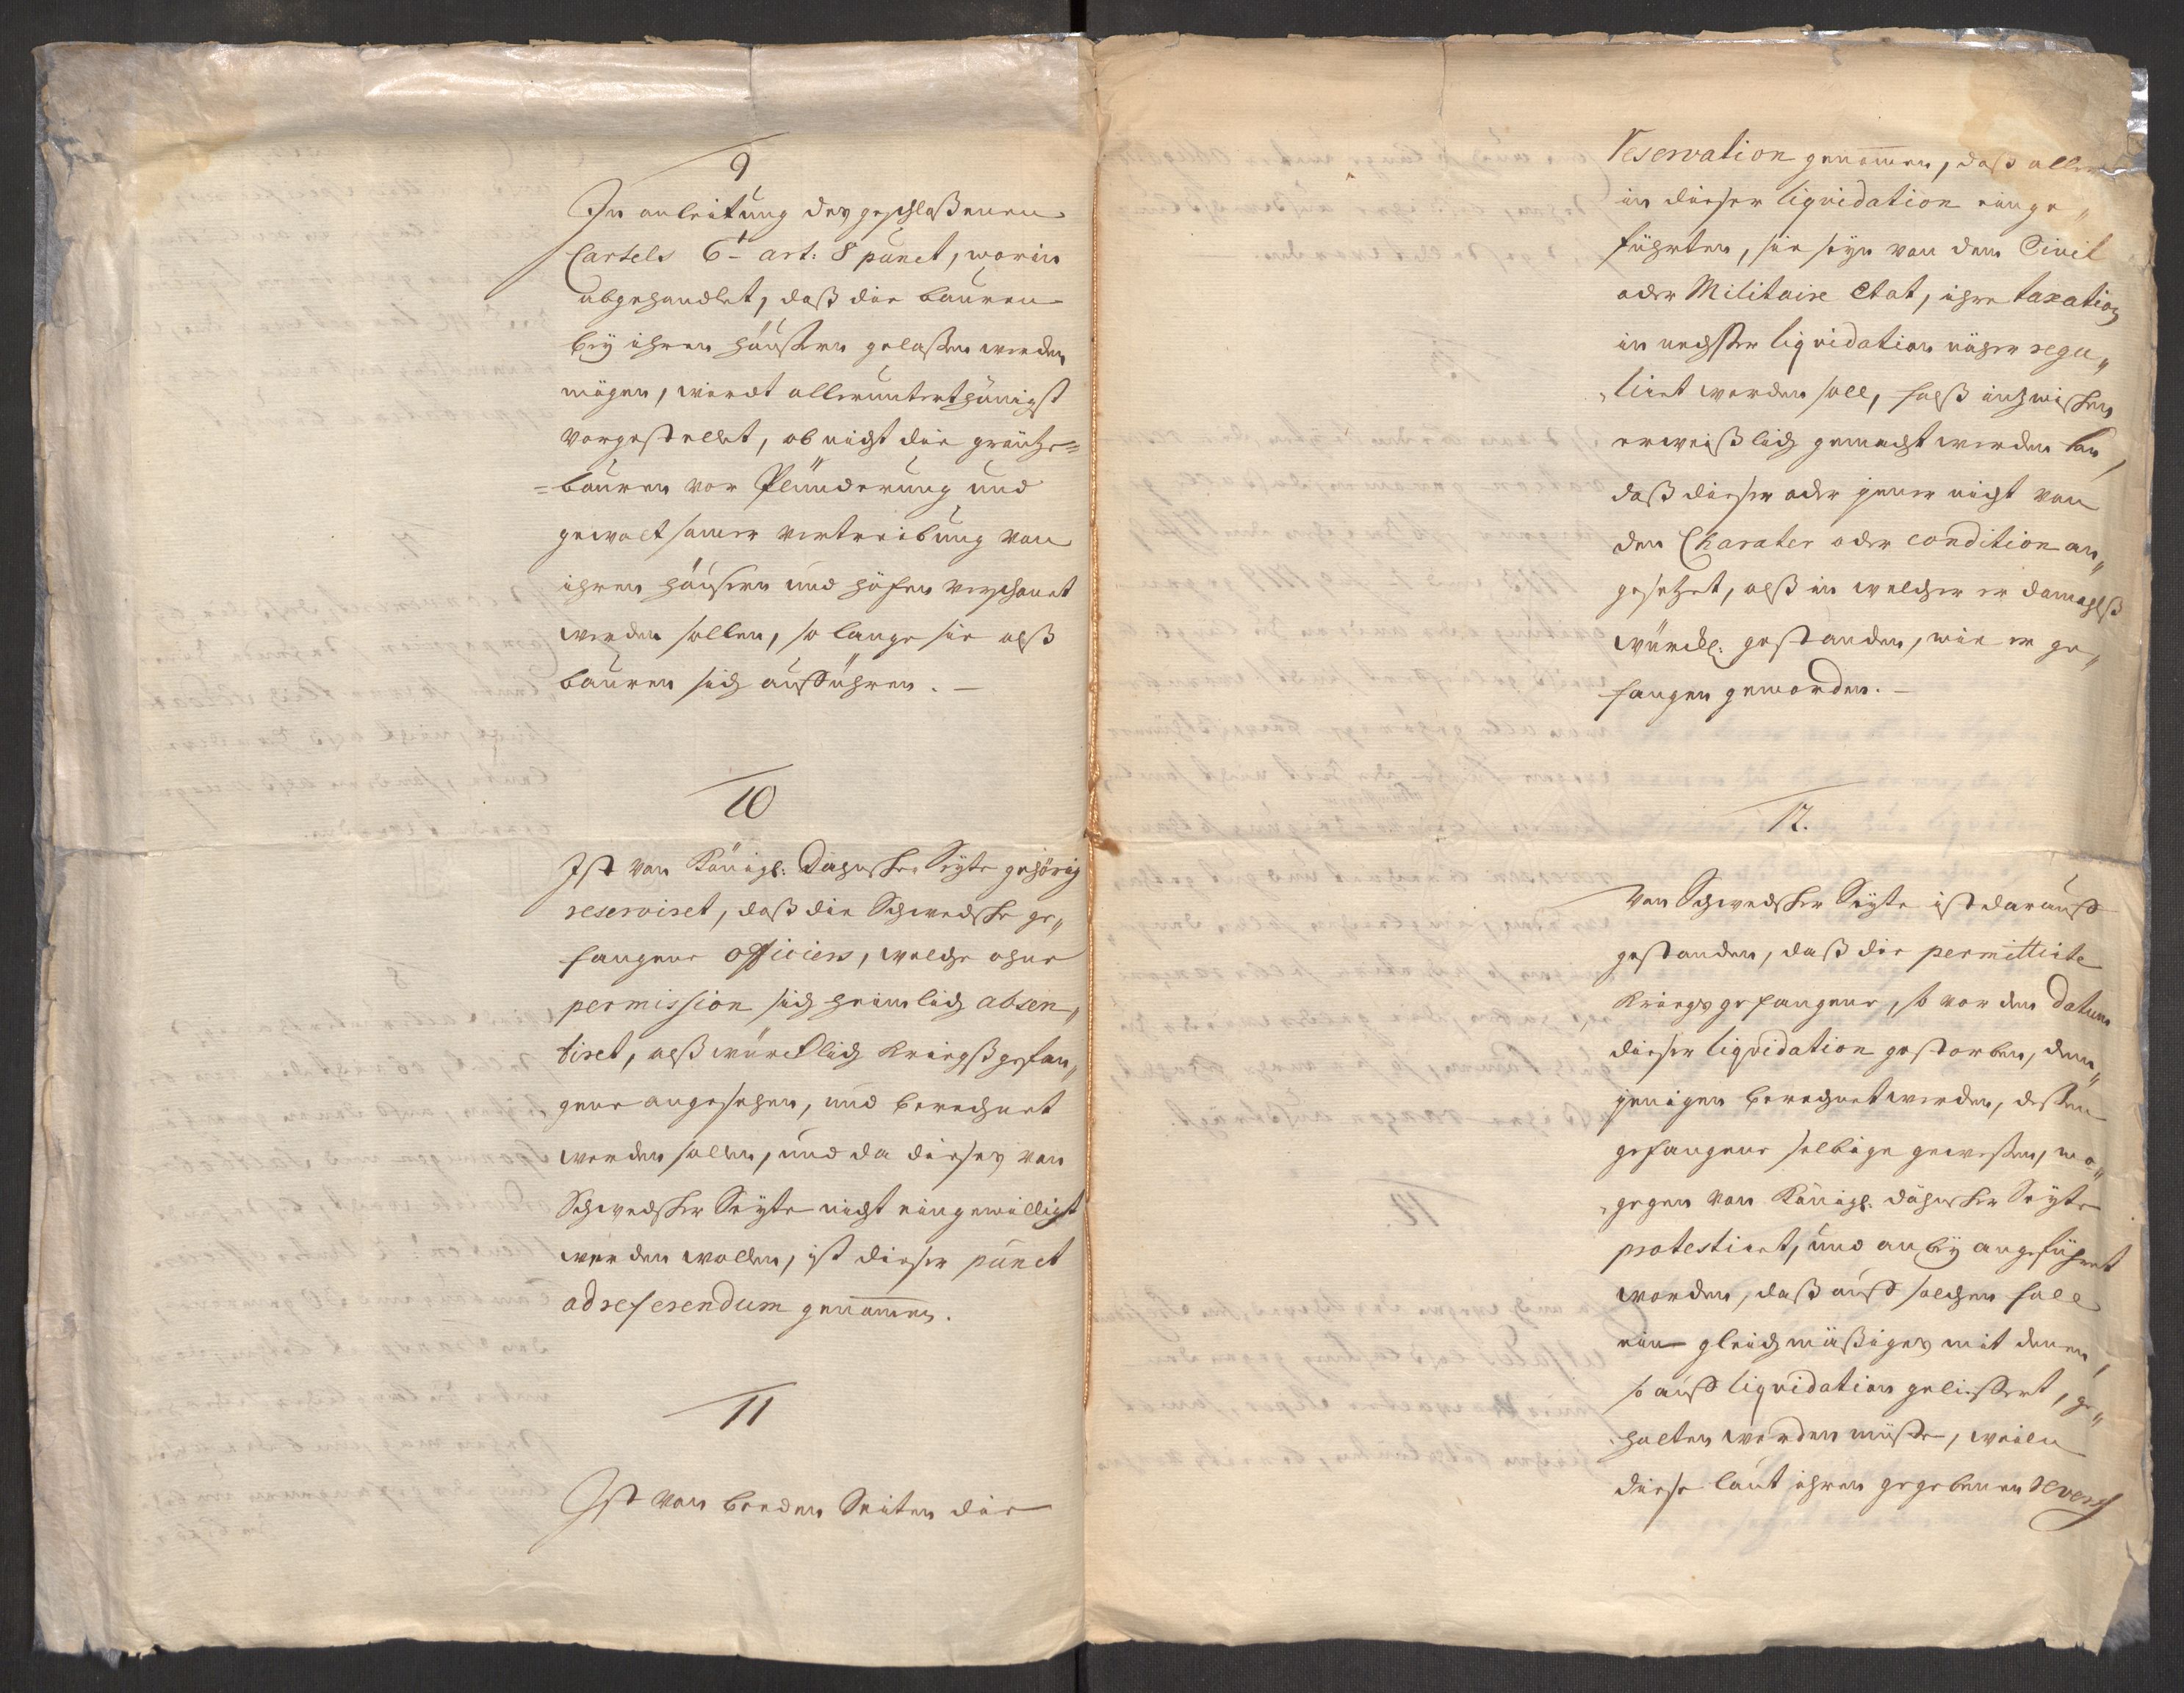 9
In anleitung des geschloßenen
Cartels 6t art: 8 punct, worin
abgehandlet, daß die bauren
bey ihren häußern gelaßen werden
mögen, wirdt allerunterthänigst
vorgestellet, ob nicht die gräntze=
=bauren vor Plünderung und
gewaltsamer vertreibung von
ihren häusern und höfen verschonet
werden sollen, so lange sie alß
bauren sich aufführen. —
10
Ist von Königl: Dähnscher Seyte gehörig
reserviret, daß die Schwedsche ge„
fangene officiers, welche ohne
permission sich heimlich absen„
tiret, alß würcklich Kriegßgefan„
gene angesehen, und berechnet
werden sollen, und da dieses von
Schwedscher Seyte nicht eingewilliget
werden wollen, ist dieser punct
ad referendum genommen.
11
Ist von beeden Seiten die
Reservation genommen, daß alle
in dieser liquidation einge„
führten, sie seyn von dem Civil
oder Militaire Etat, ihre taxation
in nechster liquidation näher regu„
„liert werden soll, falß inzwischen
erweißlich gemacht werden kan,
daß dieser oder jener nicht von
den Charater oder condition an„
gesetzet, alß in welcher er damahlß
würckl: gestanden, wie er ge„
fangen geworden. —
12.
Von Schwedscher Seyte ist darauff
gestanden, daß die permittirte
Kriegsgefangene, so vor den datum
dieser liquidation gestorben, dem„
jenigen berechnet werden, deßen
gefangene selbige geweßen, wo„
„gegen von Königl. dähnscher Seyte
protestiret, und anbey angeführet
worden, daß auff solchen fall
ein gleichmäßiges mit denen,
so auff liquidation geliefert, ge„
„halten werden müste, weilen
diese laut ihren gegebenen revers